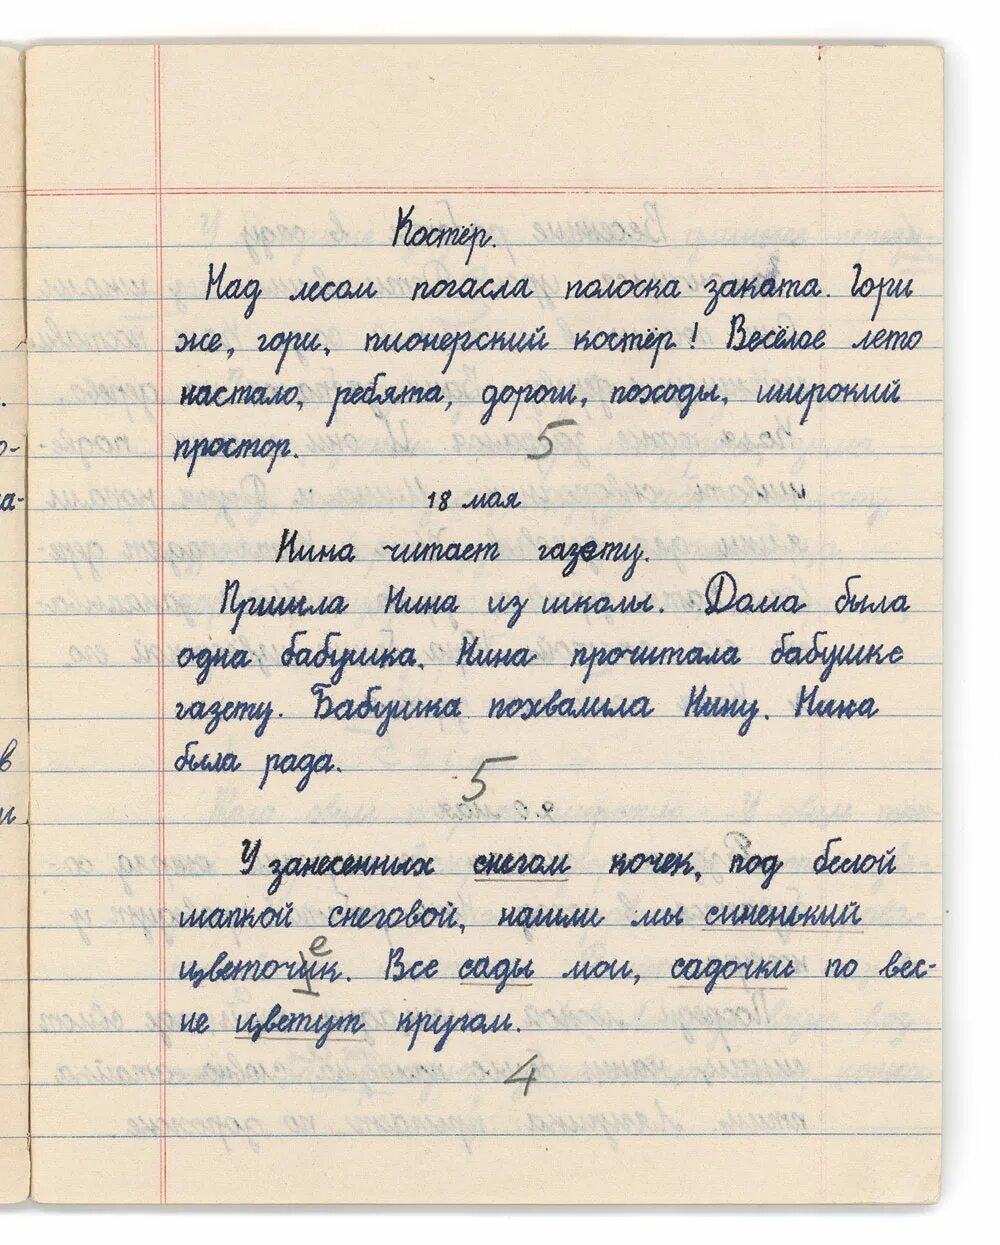 Костёр.
Над лесом погасла полоска заката. Гори
же, гори, пионерский костёр! Весёлое лето
настало, ребята, дороги, походы, широкий
простор.
5
18 мая
Нина читает газету.
Пришла Нина из школы. Дома была
одна бабушка. Нина прочитала бабушке
газету. Бабушка похвалила Нину. Нина
была рада.
5
У занесенных снегом кочек, под белой
шапкой снеговой, нашли мы синенький
е
цветочик. Все сады мои, садочки по вес-
не цветут кругом.
4